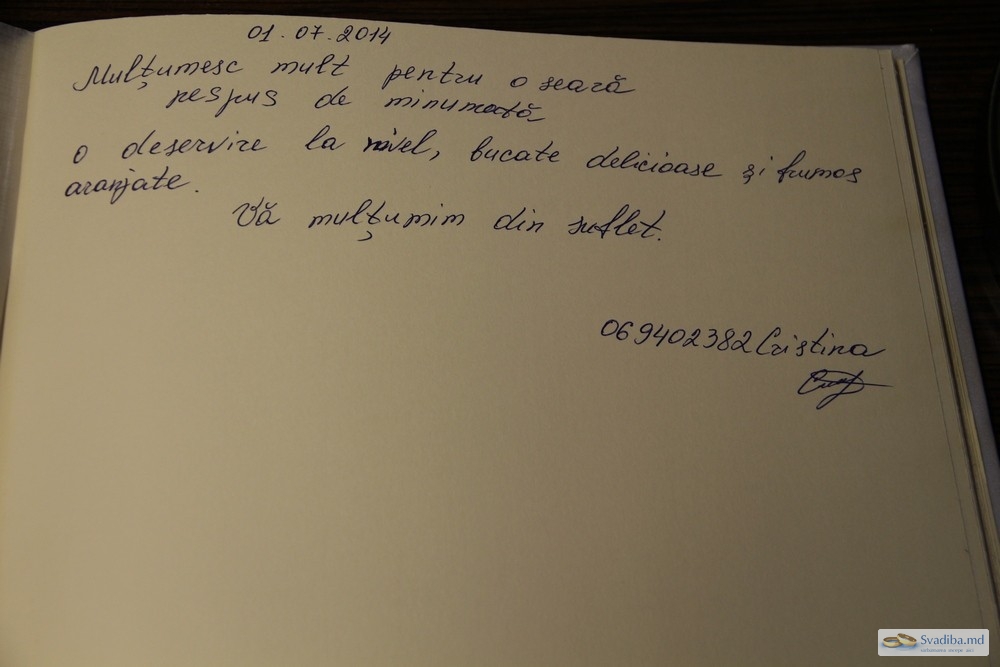 01.07.2014
Mulțumesc mult pentru o seară
nespus de minunată
o deservire la nivel, bucate delicioase și frumos
aranjate.
Vă mulțumim din suflet.
069402382 Cristina
Svadiba.md